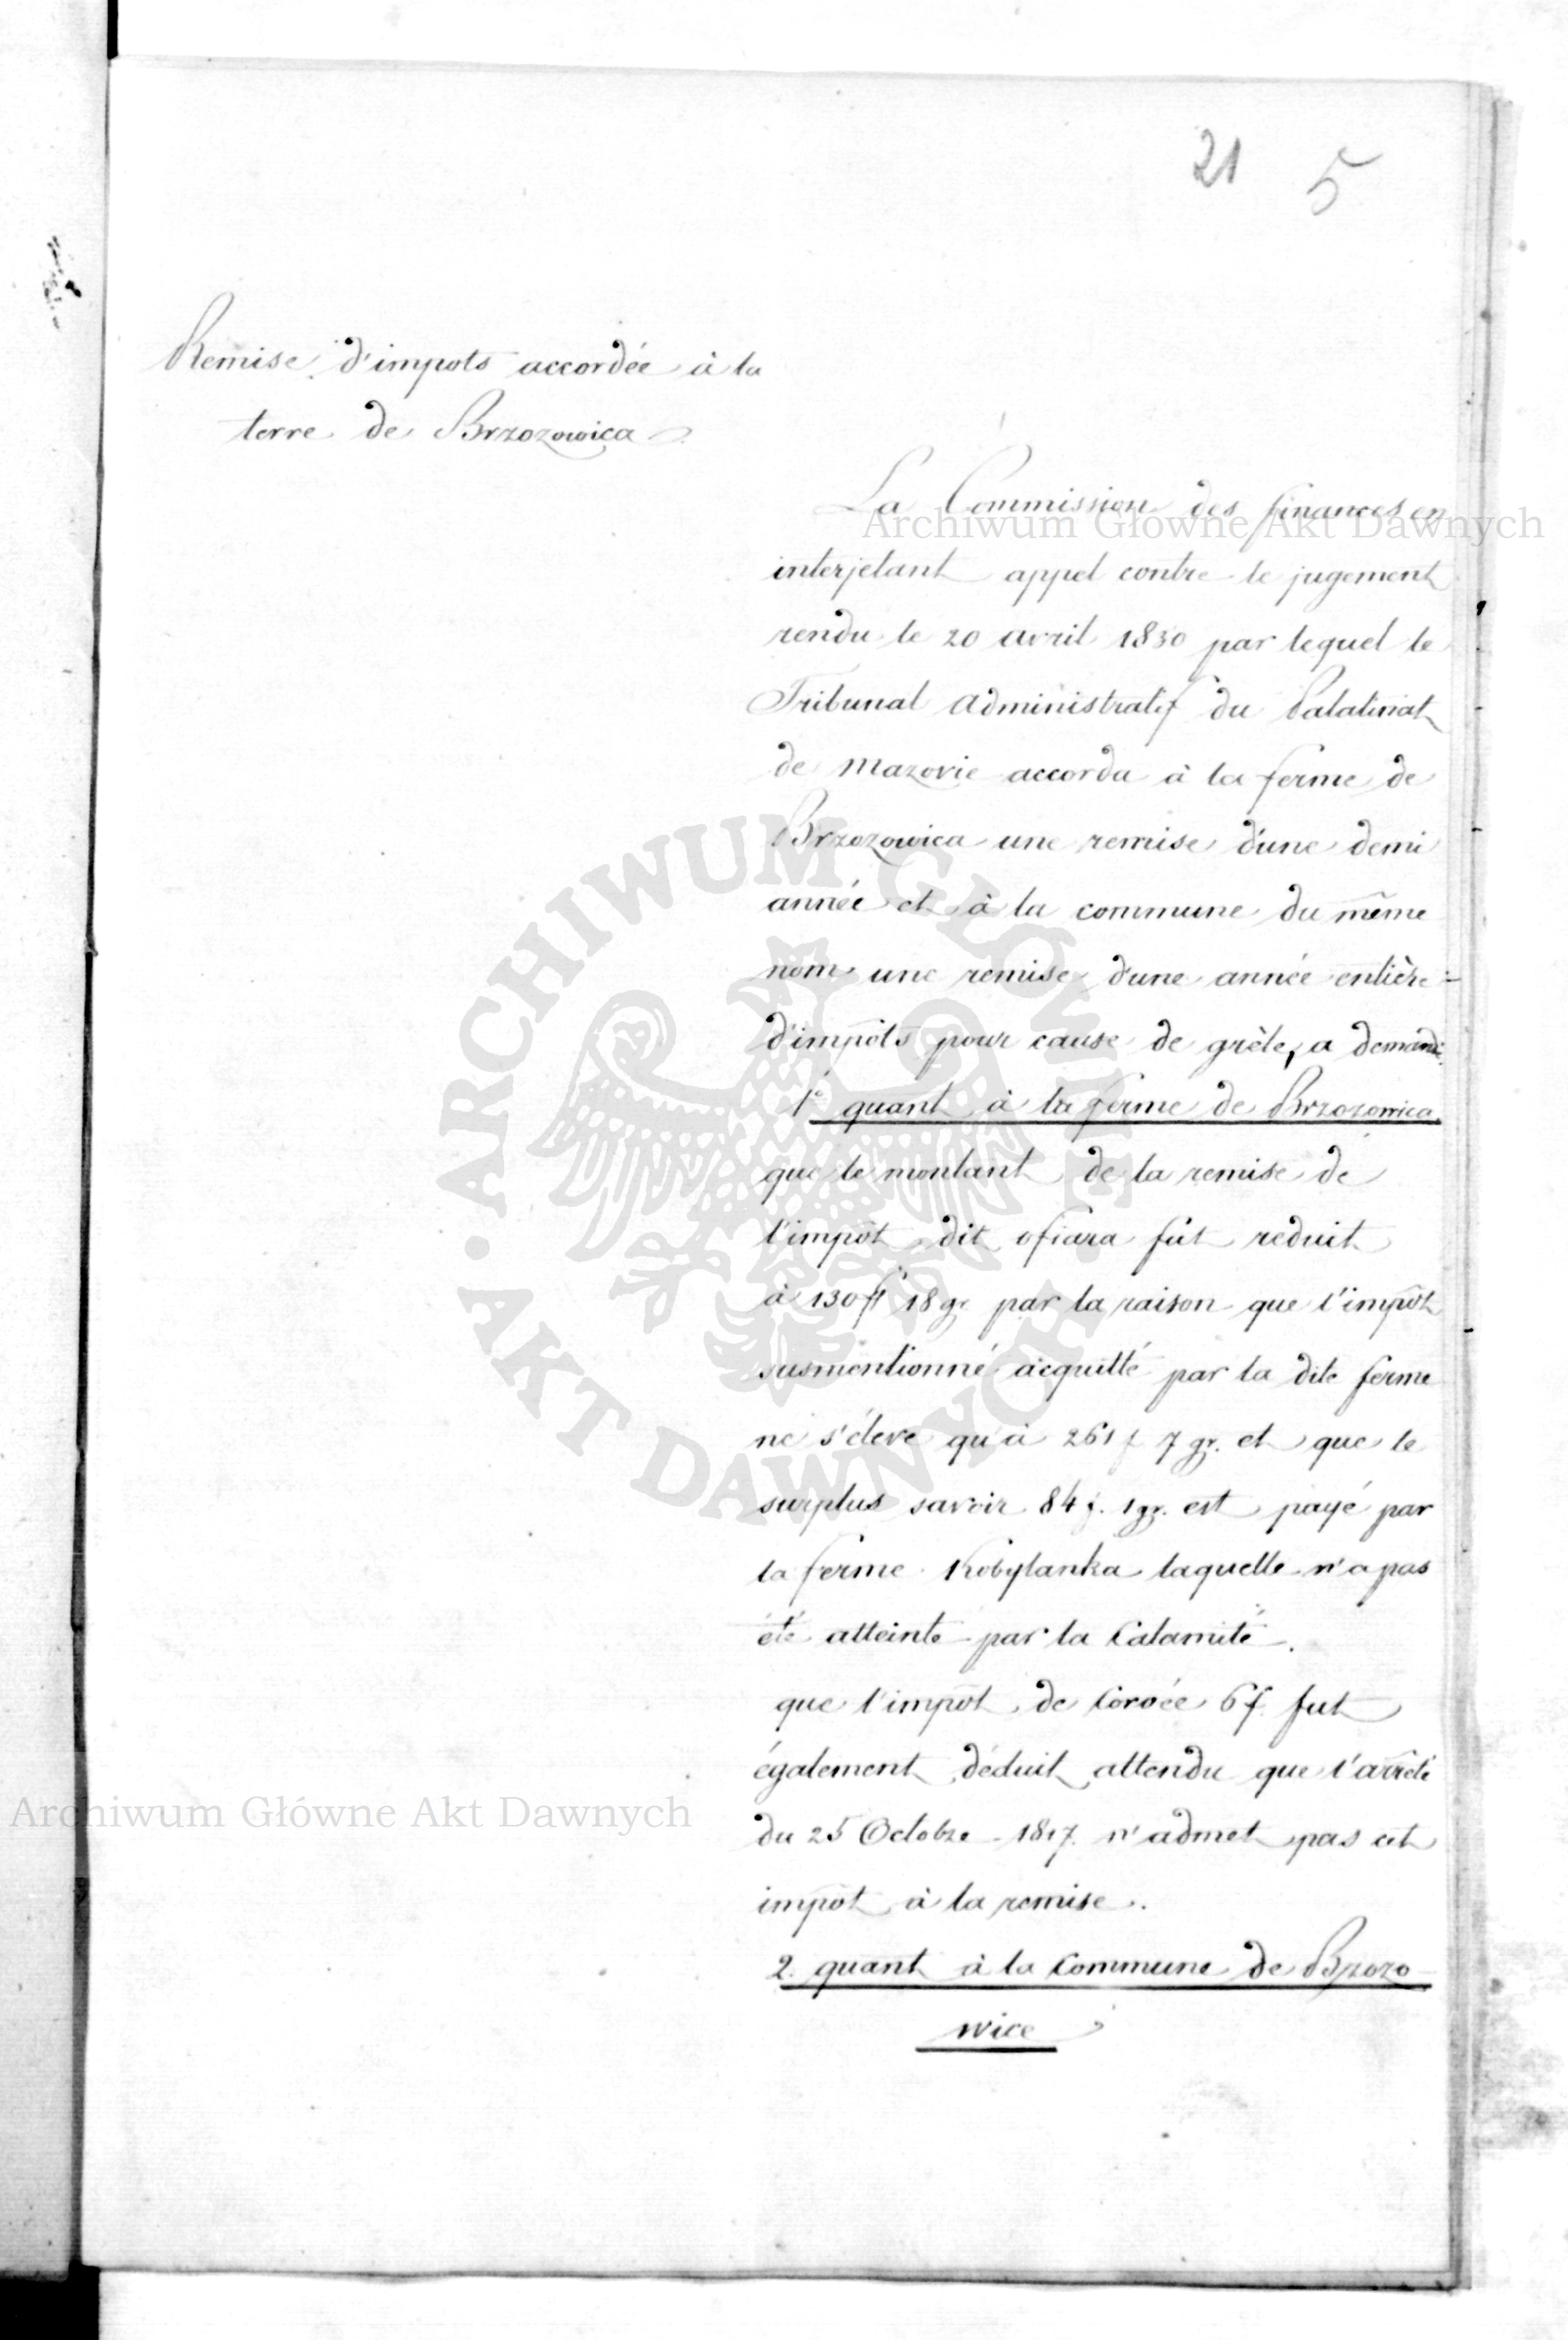 21 5
Remise d'impots accordée à la
terre de Brzozowica
La Commission des finances en
interjetant appel contre le jugement
rendu le 20 avril 1830 par lequel le
Tribunal administratif du Palatinat
de Mazovie accorda à la ferme de
Brzozowica une remise d'une demi
année et à la commune du même
nom une remise d'une année entière
d'impôts pour cause de grèle, a demandé
1° quant à la ferme de Brzozowica
que le montant de la remise de
l'impôt dit ofiara fût reduit
à 130 fl 18 gr par la raison que l'impôt
susmentionné acquitté par la dite ferme
ne s'éleve qu'à 261 f 7 gr. et que le
surplus savoir 84 f. 1 gr. est payé par
la ferme Kobylanka laquelle n'a pas
été atteinte par la Calamité.
que l'impôt de Corvée 6 f. fut
également déduit attendu que l'arrêté
du 25 Octobre 1817. n'admet pas cet
impôt à la remise.
2. quant à la Commune de Brzozo
wice
Archiwum Główne Akt Dawnych
ARCHIWUM GŁÓWNE AKT DAWNYCH
Archiwum Główne Akt Dawnych